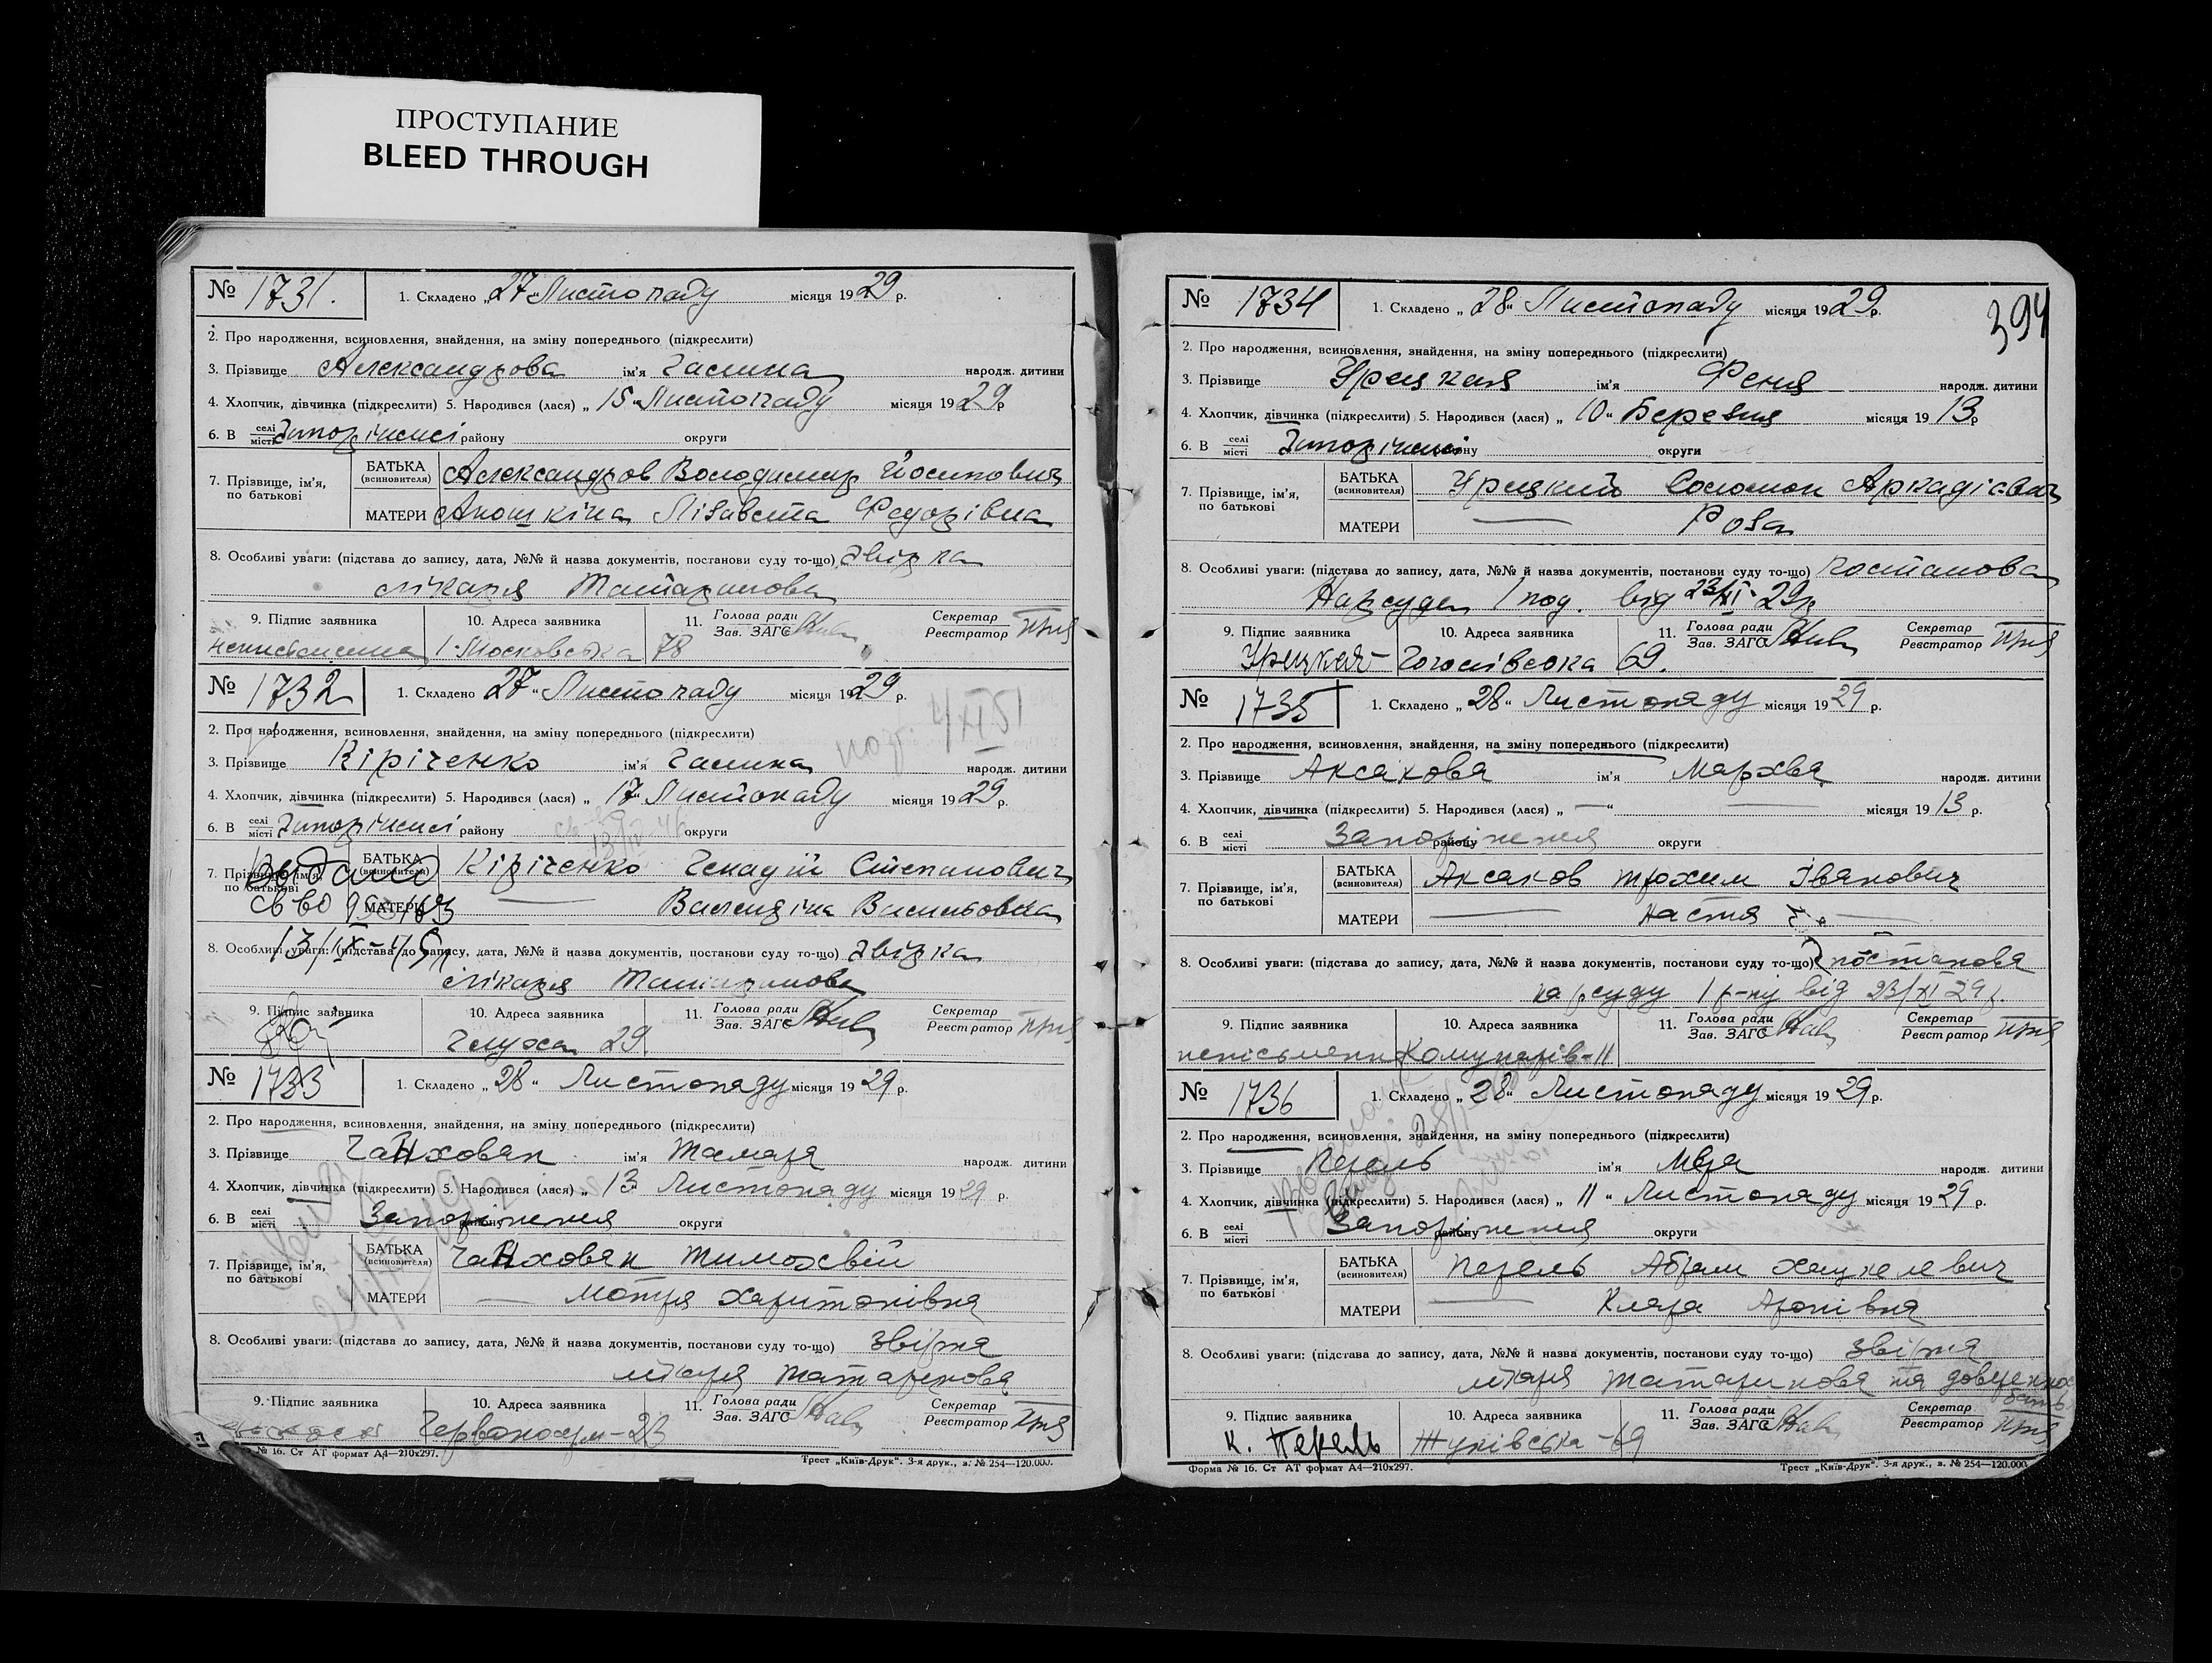 ПРОСТУПАНИЕ
BLEED THROUGH
№ 1731. 1. Складено „27“ Листопаду місяця 1929 р.
2. Про народження, всиновлення, знайдення, на зміну попереднього (підкреслити)
3. Прізвище Александрова ім'я Галина народж. дитини
4. Хлопчик, дівчинка (підкреслити) 5. Народився (лася) „15“ Листопаду місяця 1929 р
6. В селі місті Запоріжжі району округи
7. Прізвище, ім'я, по батькові БАТЬКА (всиновителя) Александров Володимир Йосипович
МАТЕРИ Аношкіна Лізавета Федорівна
8. Особливі уваги: (підстава до запису, дата, №№ й назва документів, постанови суду то-що) Звірка
лікаря Татаринова
9. Підпис заявника 10. Адреса заявника 11. Голова ради Зав. ЗАГС Секретар Реєстратор
І-Московська 78
№ 1732 1. Складено 27“ Листопаду місяця 1929 р.
2. Про народження, всиновлення, знайдення, на зміну попереднього (підкреслити)
3. Прізвище Кіріченко ім'я Галина народж. дитини
4. Хлопчик, дівчинка (підкреслити) 5. Народився (лася) „17“ Листопаду місяця 1929 р.
6. В селі місті Запоріжжі району округи
7. Прізвище, ім'я, по батькові БАТЬКА (всиновителя) Кіріченко Генадій Степанович
МАТЕРИ — Валендіна Васильовна
8. Особливі уваги: (підстава до запису, дата, №№ й назва документів, постанови суду то-що) Звірка
лікаря Татаринова
9. Підпис заявника 10. Адреса заявника 11. Голова ради Зав. ЗАГС Секретар Реєстратор
29
№ 1733 1. Складено „28“ Листопаду місяця 1929 р.
2. Про народження, всиновлення, знайдення, на зміну попереднього (підкреслити)
3. Прізвище Чанховяк ім'я Тамара народж. дитини
4. Хлопчик, дівчинка (підкреслити) 5. Народився (лася) „13 Листопаду місяця 1929 р.
6. В селі місті Запоріжжя району округи
7. Прізвище, ім'я, по батькові БАТЬКА (всиновителя) Чанховяк Тимохвій
МАТЕРИ — Мотря Харитонівна
8. Особливі уваги: (підстава до запису, дата, №№ й назва документів, постанови суду то-що) звірка
лікаря Татаринова
9. Підпис заявника 10. Адреса заявника 11. Голова ради Зав. ЗАГС Секретар Реєстратор
Червоноарм-23
№ 16. Ст АТ формат А4—210х297. Трест „Київ-Друк“. 3-я друк., з. № 254—120.000.
394
№ 1734 1. Складено „28“ Листопаду місяця 1929 р.
2. Про народження, всиновлення, знайдення, на зміну попереднього (підкреслити)
3. Прізвище Урецкая ім'я Феня народж. дитини
4. Хлопчик, дівчинка (підкреслити) 5. Народився (лася) „10“ Березня місяця 1913 р
6. В селі місті Запоріжжі району округи
7. Прізвище, ім'я, по батькові БАТЬКА (всиновителя) Урецкий Соломон Аркадієвич
МАТЕРИ — Роза
8. Особливі уваги: (підстава до запису, дата, №№ й назва документів, постанови суду то-що) постанова
Нарсуда 1 под. від 23/XI-29р
9. Підпис заявника 10. Адреса заявника 11. Голова ради Зав. ЗАГС Секретар Реєстратор
Урецкая Гоголівська 69.
№ 1735 1. Складено „28“ Листопаду місяця 1929 р.
2. Про народження, всиновлення, знайдення, на зміну попереднього (підкреслити)
3. Прізвище Аксакова ім'я Мархва народж. дитини
4. Хлопчик, дівчинка (підкреслити) 5. Народився (лася) „—“ — місяця 1913 р.
6. В селі місті Запоріжжя району округи
7. Прізвище, ім'я, по батькові БАТЬКА (всиновителя) Аксаков Трохим Іванович
МАТЕРИ — Настя —
8. Особливі уваги: (підстава до запису, дата, №№ й назва документів, постанови суду то-що) постанова
нарсуду 1 р-ну від 23/XI 29 р.
9. Підпис заявника 10. Адреса заявника 11. Голова ради Зав. ЗАГС Секретар Реєстратор
неписьменн Комунарів-11
№ 1736 1. Складено „28“ Листопаду місяця 1929 р.
2. Про народження, всиновлення, знайдення, на зміну попереднього (підкреслити)
3. Прізвище Перель ім'я Міра народж. дитини
4. Хлопчик, дівчинка (підкреслити) 5. Народився (лася) „11“ Листопаду місяця 1929 р.
6. В селі місті Запоріжжя району округи
7. Прізвище, ім'я, по батькові БАТЬКА (всиновителя) Перель Абрам Хацкелевич
МАТЕРИ — Клара Аронівна
8. Особливі уваги: (підстава до запису, дата, №№ й назва документів, постанови суду то-що) звірка
лікаря Татаринова та довіренность
9. Підпис заявника 10. Адреса заявника 11. Голова ради Зав. ЗАГС Секретар Реєстратор
К. Перель Жуківська-69
Форма № 16. Ст АТ формат А4—210х297. Трест „Київ-Друк“. 3-я друк., з. № 254—120.000